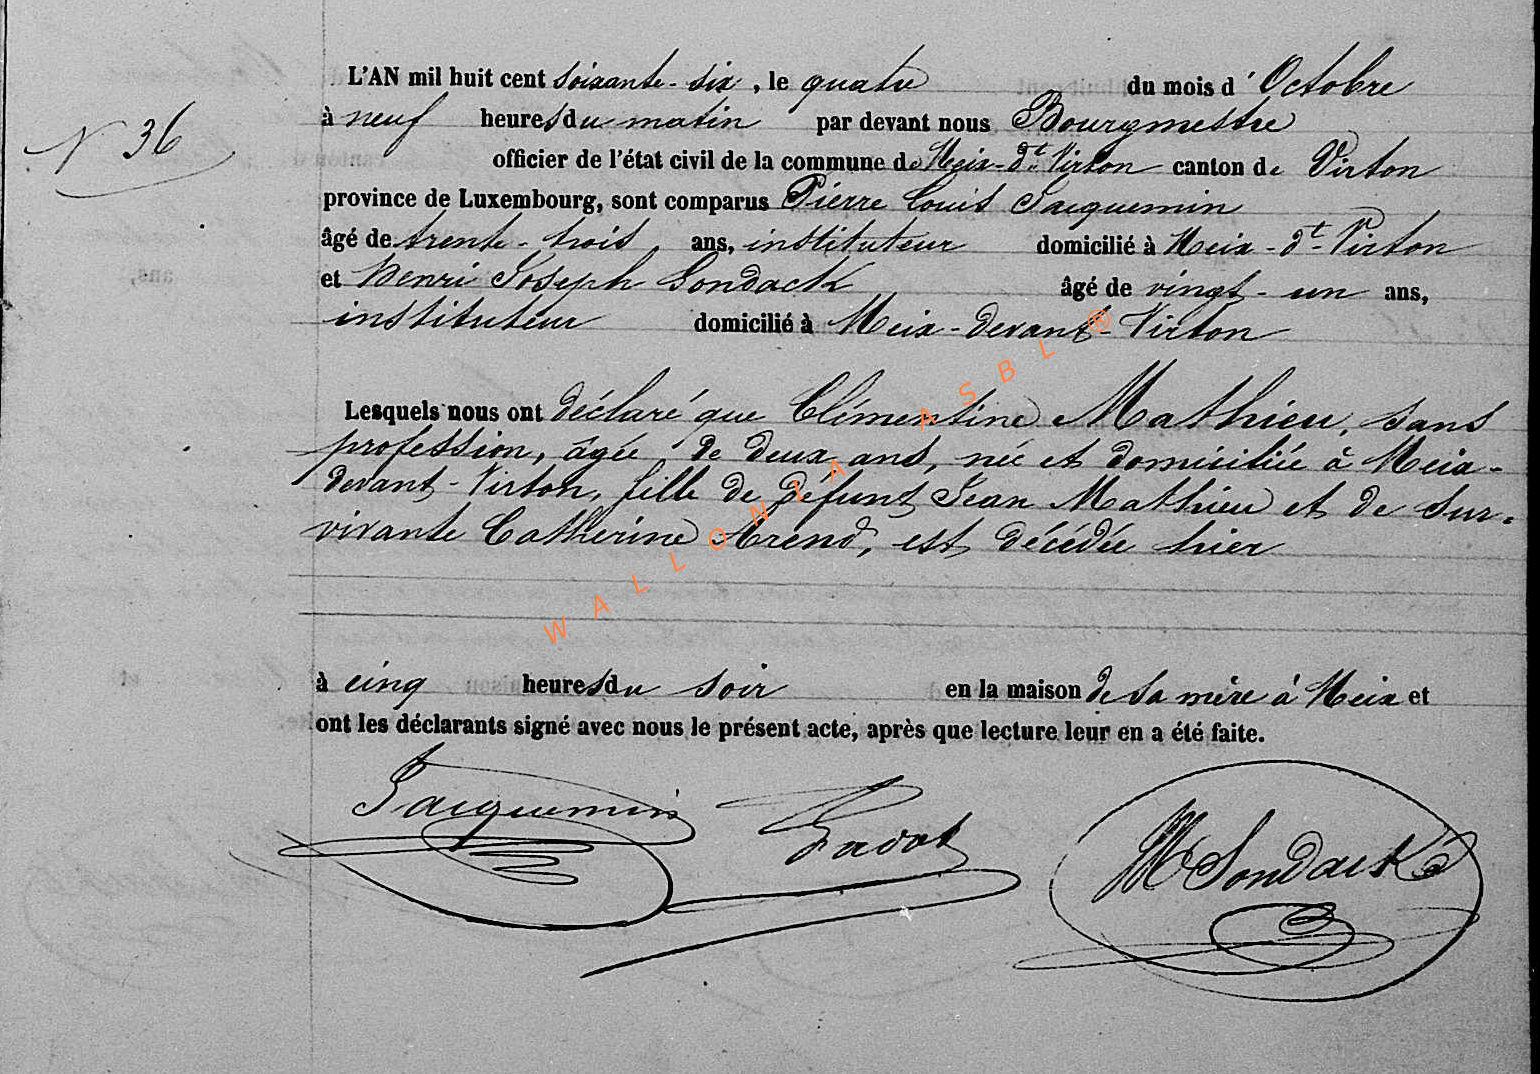 N° 36
L'AN mil huit cent soixante-six, le quatre du mois d'Octobre
à neuf heures du matin par devant nous Bourgmestre
officier de l'état civil de la commune de Meix-dt-Virton canton de Virton
province de Luxembourg, sont comparus Pierre Louis Jacquemin
âgé de trente-trois ans, instituteur domicilié à Meix-dt-Virton
et Henri Joseph Gondack âgé de vingt-un ans,
instituteur domicilié à Meix-devant-Virton
Lesquels nous ont déclaré que Clémentine Mathieu, sans
profession, âgée de deux ans, née et domiciliée à Meix-
devant-Virton, fille de défunt Jean Mathieu et de sur-
vivante Catherine Arend, est décédée hier
à cinq heures du soir en la maison de sa mère à Meix et
ont les déclarants signé avec nous le présent acte, après que lecture leur en a été faite.
Jacquemin Gondack
WALLONIA ASBL ®